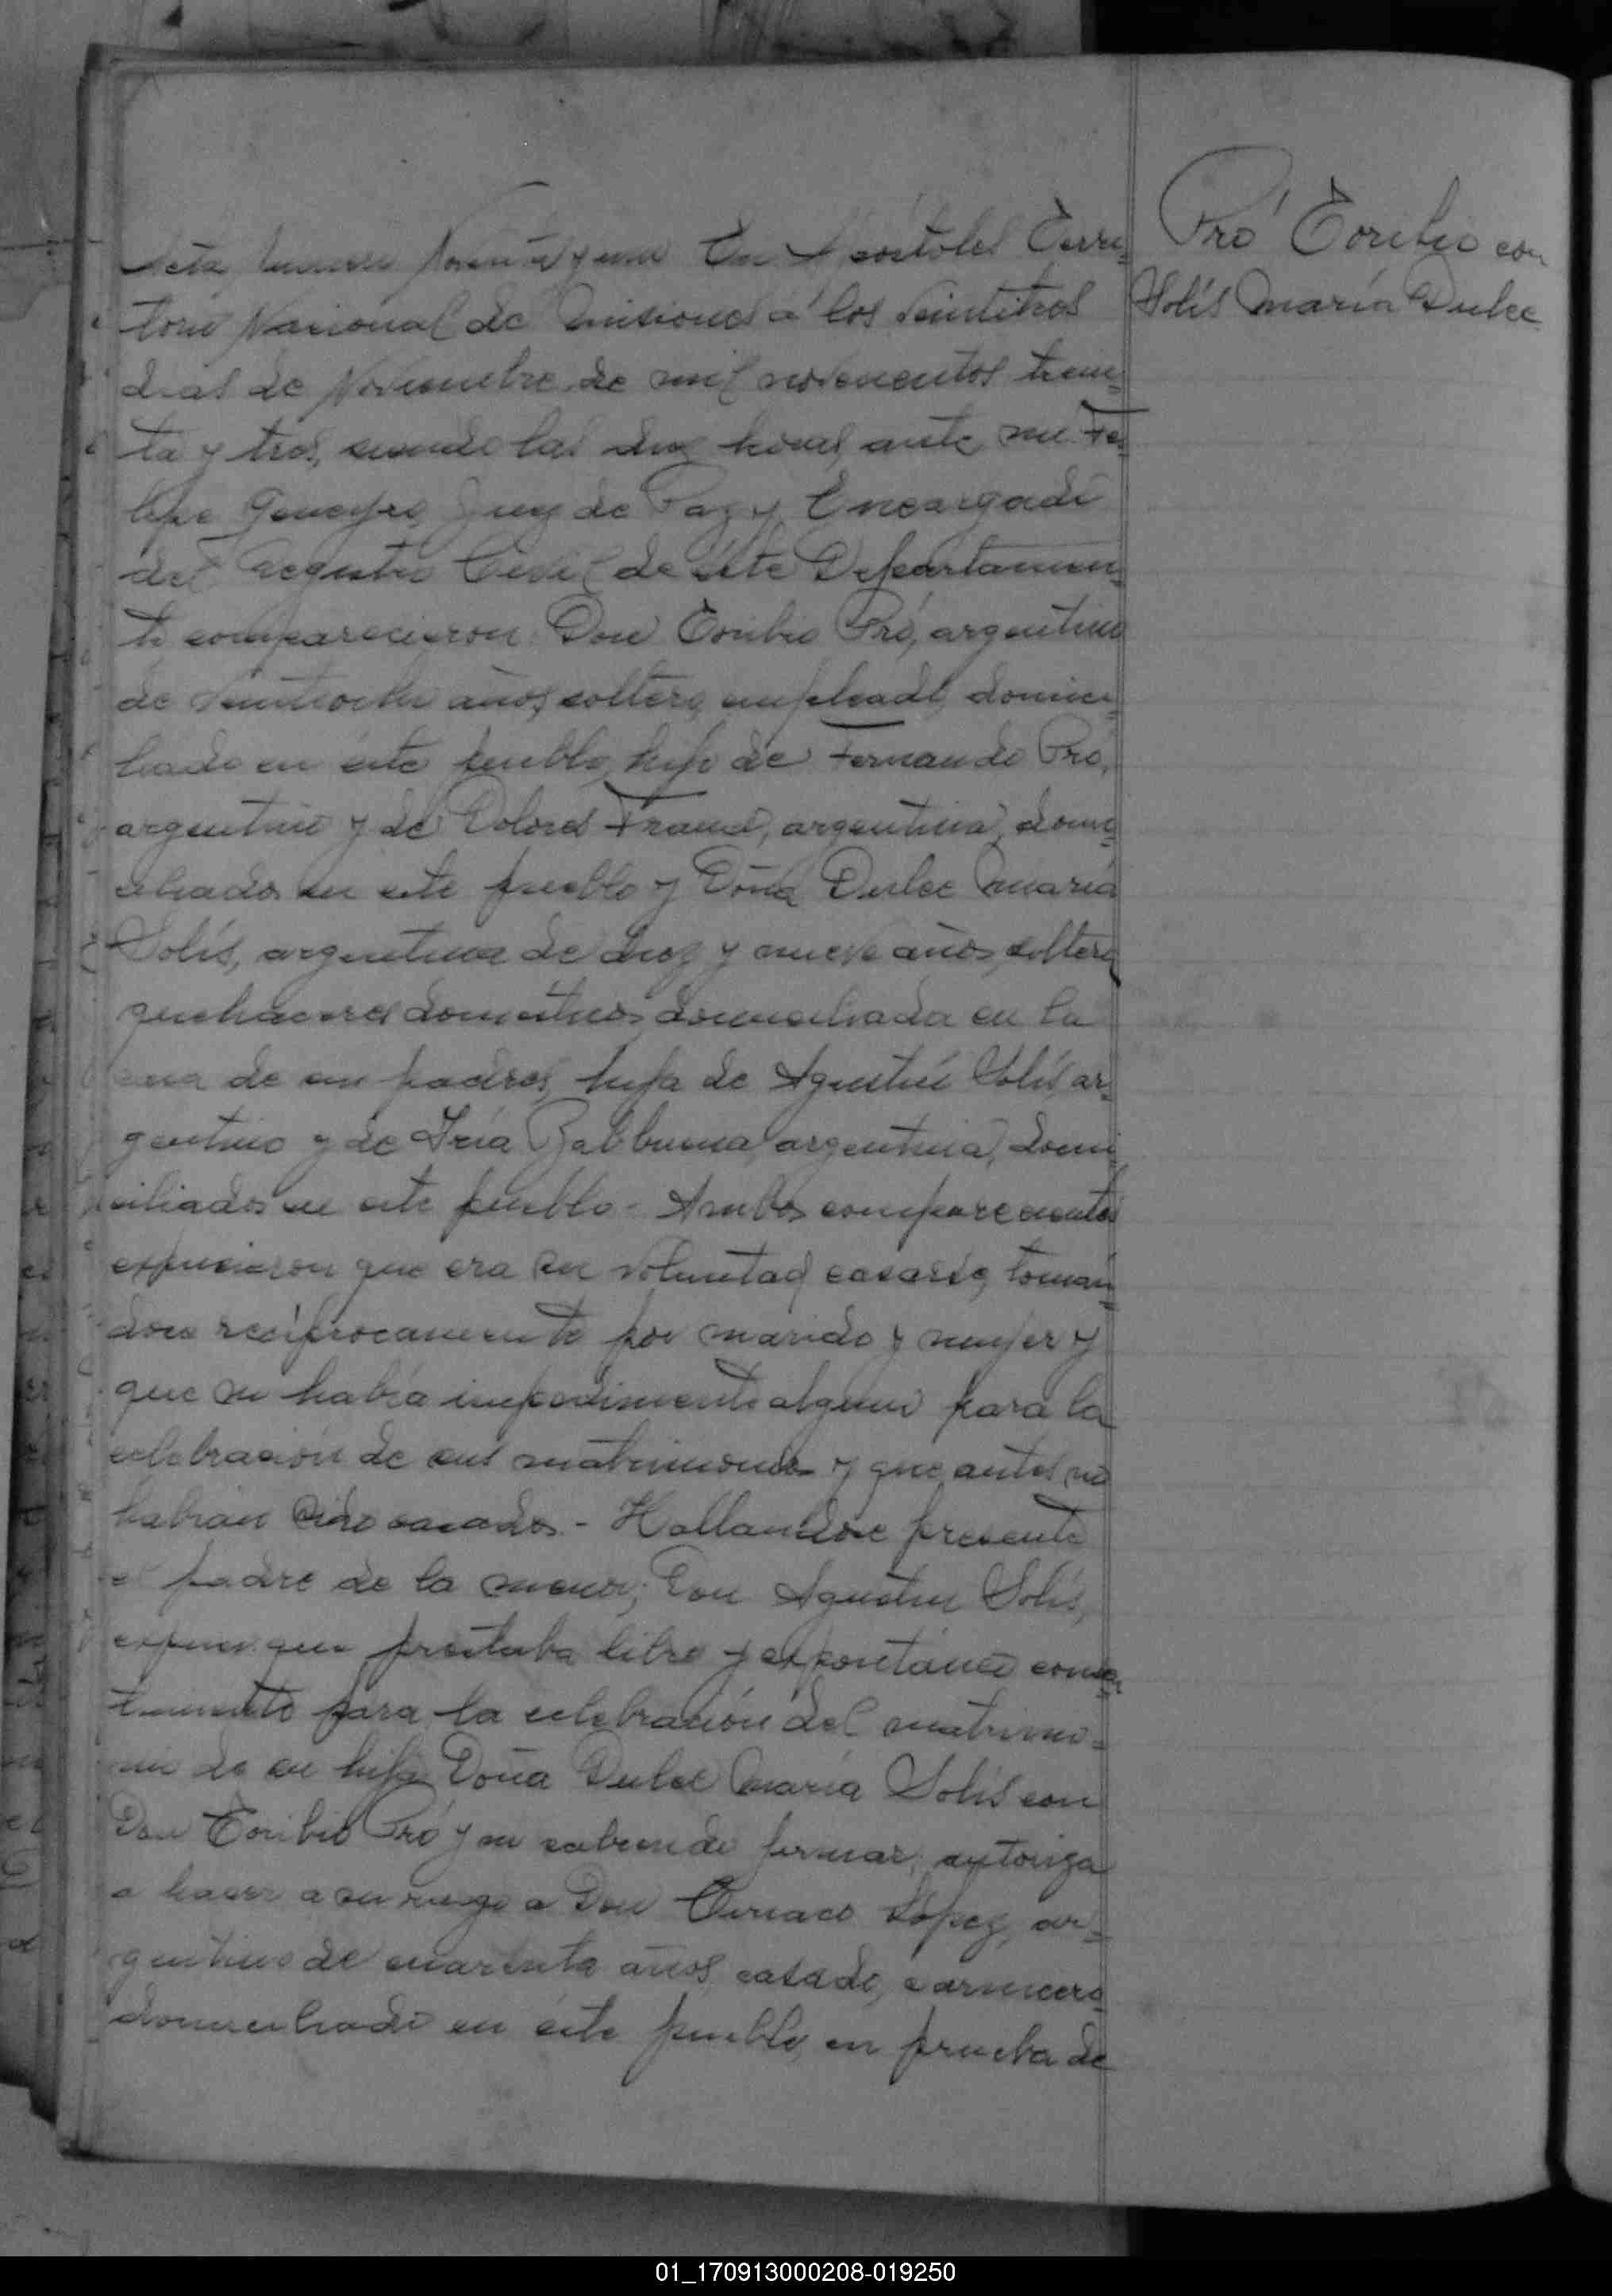 Pró Toribio con
Solís María Dulce
Acta número noventa y uno En Apóstoles Terri-
torio Nacional de Misiones a los veintitres
dias de Noviembre de mil novecientos trein-
ta y tres, siendo las diez horas, ante mi Fe-
lipe Juez de Paz y Encargado
del Registro Civil de éste Departamen-
to comparecieron: Don Toribio Pró, argentino
de veintiocho años, soltero, empleado, domici-
liado en éste pueblo, hijo de Fernando Pró,
argentino y de Dolores argentina, domi-
ciliados en este pueblo y Doña Dulce María
Solís, argentina de diez y nueve años, soltera
quehaceres domésticos domiciliada en la
casa de sus padres, hija de Agustín Solís, ar-
gentino y de argentina, domi-
ciliados en este pueblo - Ambos comparecientes
expusieron que era su voluntad casarse, toman-
dose recíprocamente por marido y mujer y
que no había impedimento alguno para la
celebración de sus matrimonio y que antes no
habían sido casados. - Hallandose presente
el padre de la menor, Don Agustín Solís,
expuso que prestaba libre y expontáneo consen-
timiento para la celebración del matrimo-
nio de su hija Doña Dulce María Solís con
Don Toribio Pró y no sabiendo firmar, autoriza
a hacer a su ruego a Don Ciriaco López, ar-
gentino de cuarenta años, casado, carnicero
domiciliado en éste pueblo, en prueba de
01_170913000208-019250